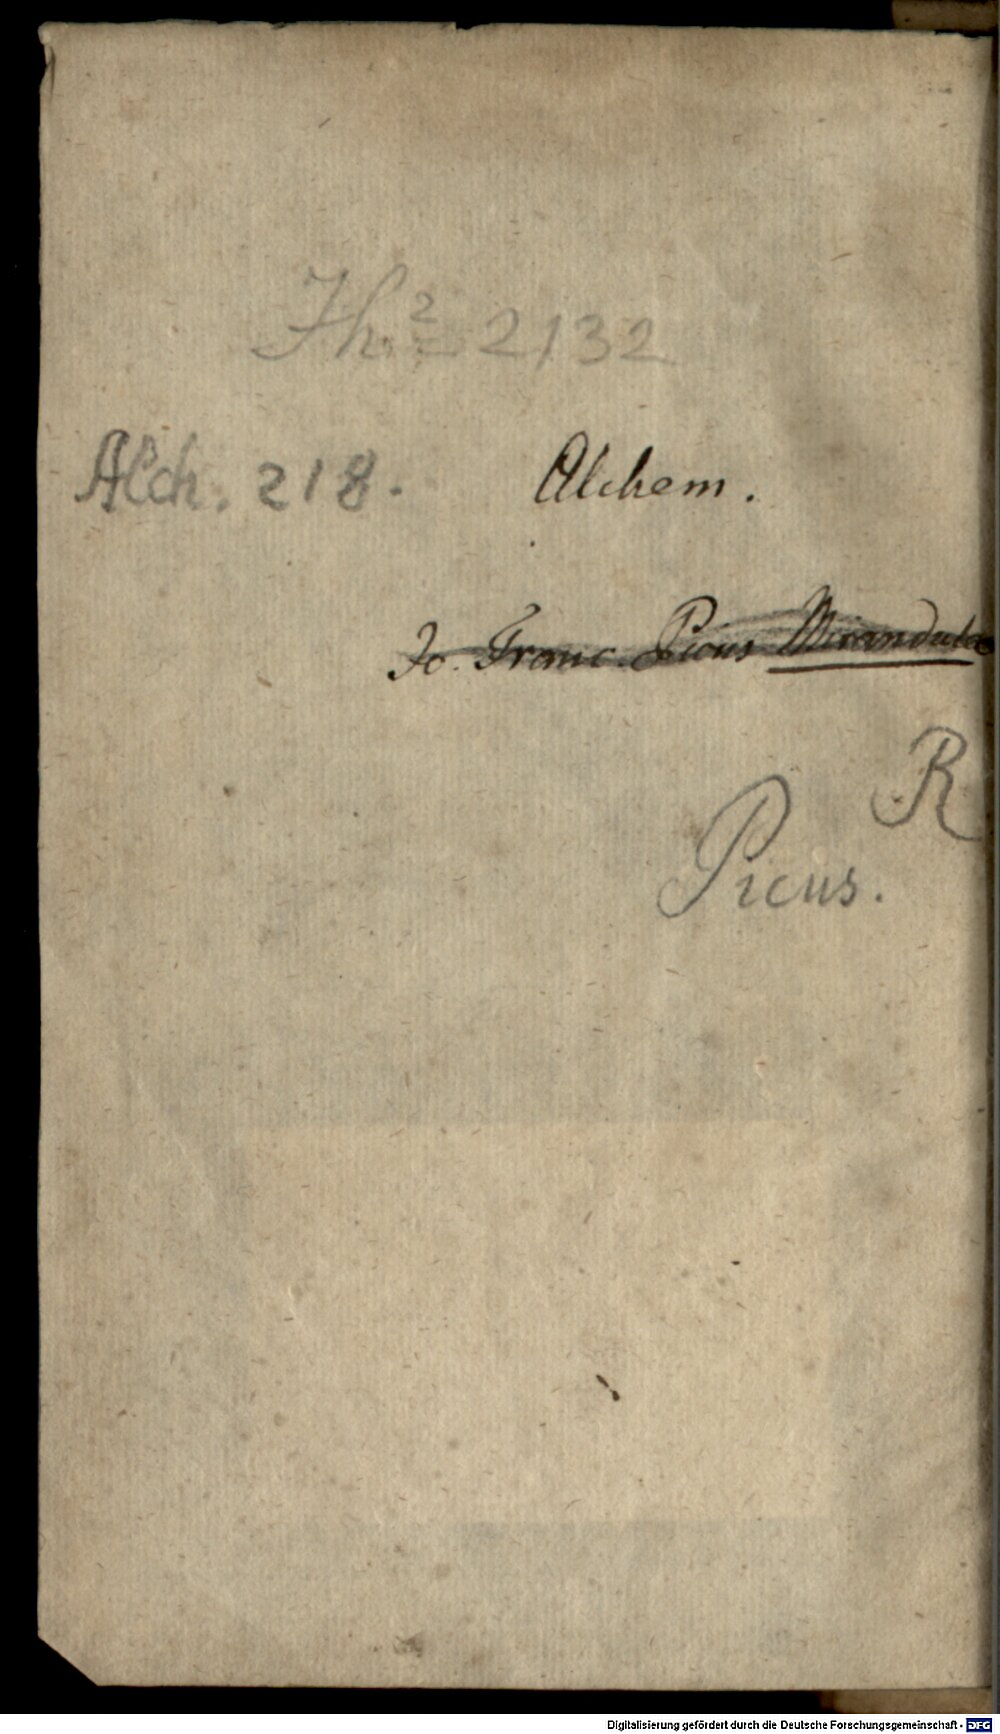 Th. 2 2132
Alch. 218. Alchem.
Jo. Franc. Picus Mirandula
R
Picus.
Digitalisierung gefördert durch die Deutsche Forschungsgemeinschaft - DFG